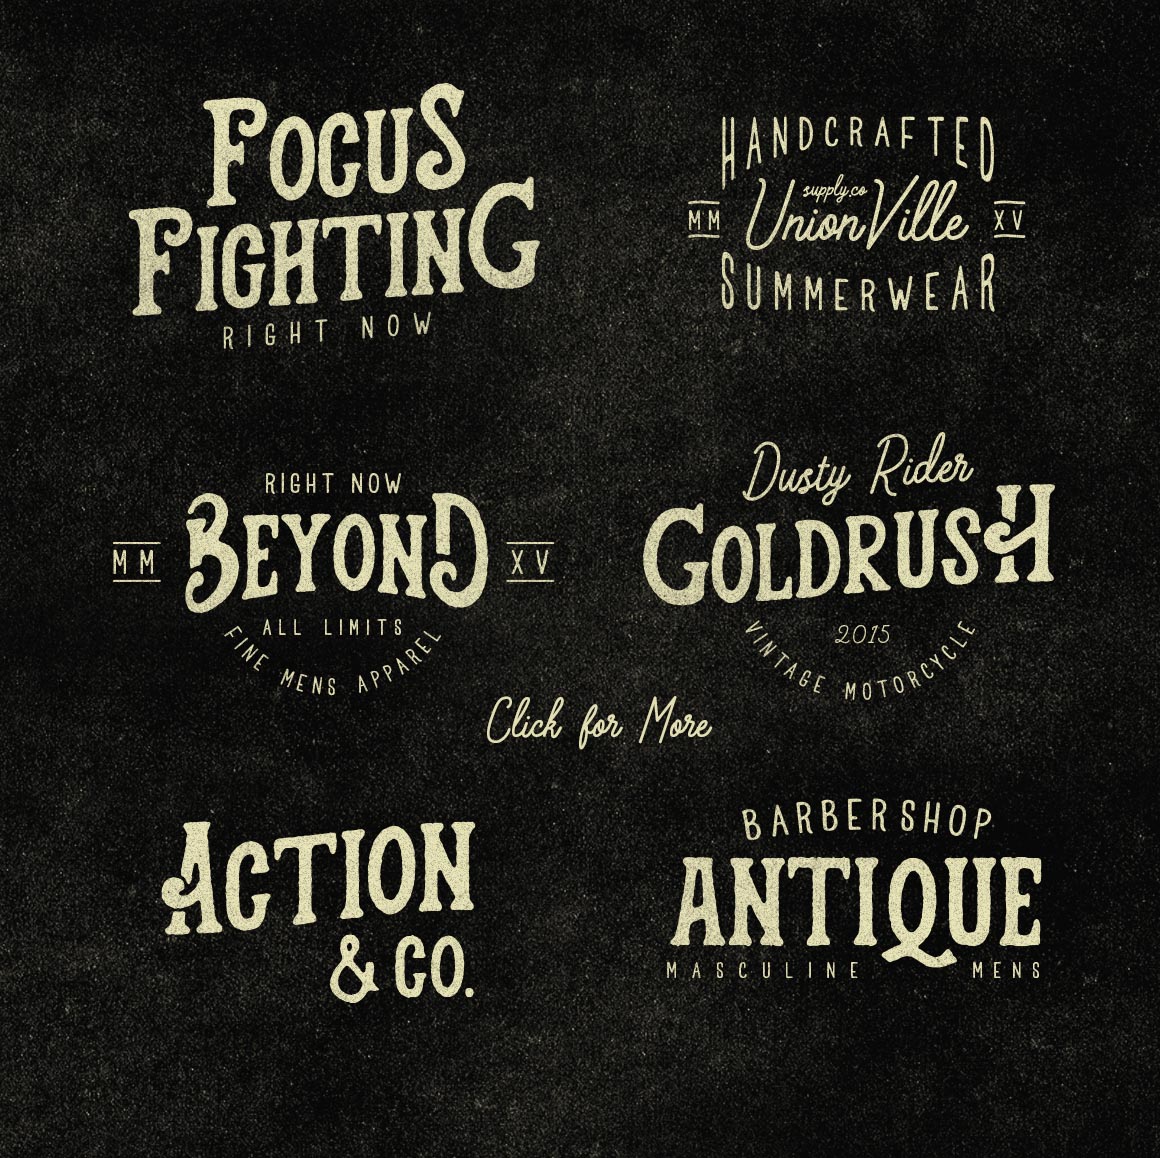 FOCUS
FIGHTING
RIGHT NOW
HANDCRAFTED
supply.co
MM UnionVille XV
SUMMERWEAR
RIGHT NOW
MM BEYOND XV
ALL LIMITS
FINE MENS APPAREL
Dusty Rider
GOLDRUSH
2015
VINTAGE MOTORCYCLE
Click for More
ACTION
& CO.
BARBERSHOP
ANTIQUE
MASCULINE MENS